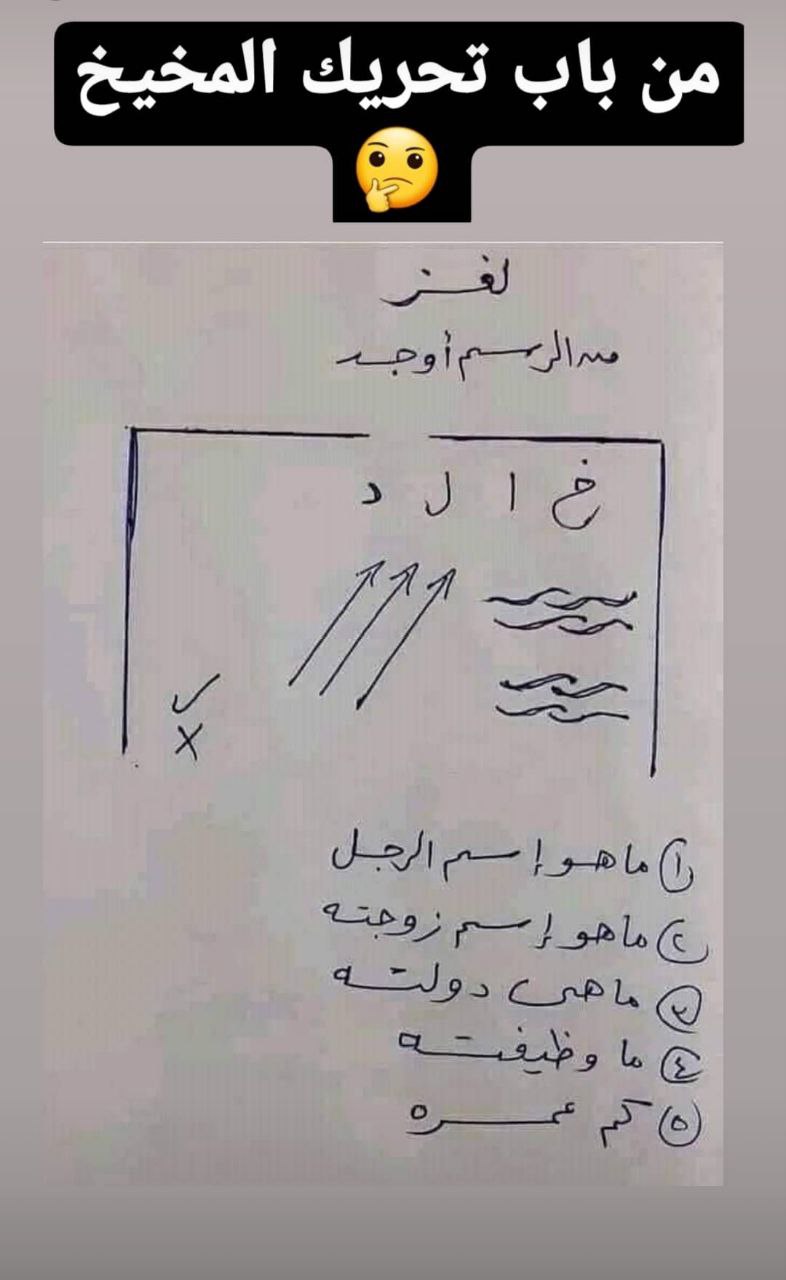 من باب تحريك المخيخ
لغز
من الرسم أوجد
خ ا ل د
✓
X
١ ما هو إسم الرجل
٢ ما هو إسم زوجته
٣ ما هى دولته
٤ ما وظيفته
٥ كم عمره